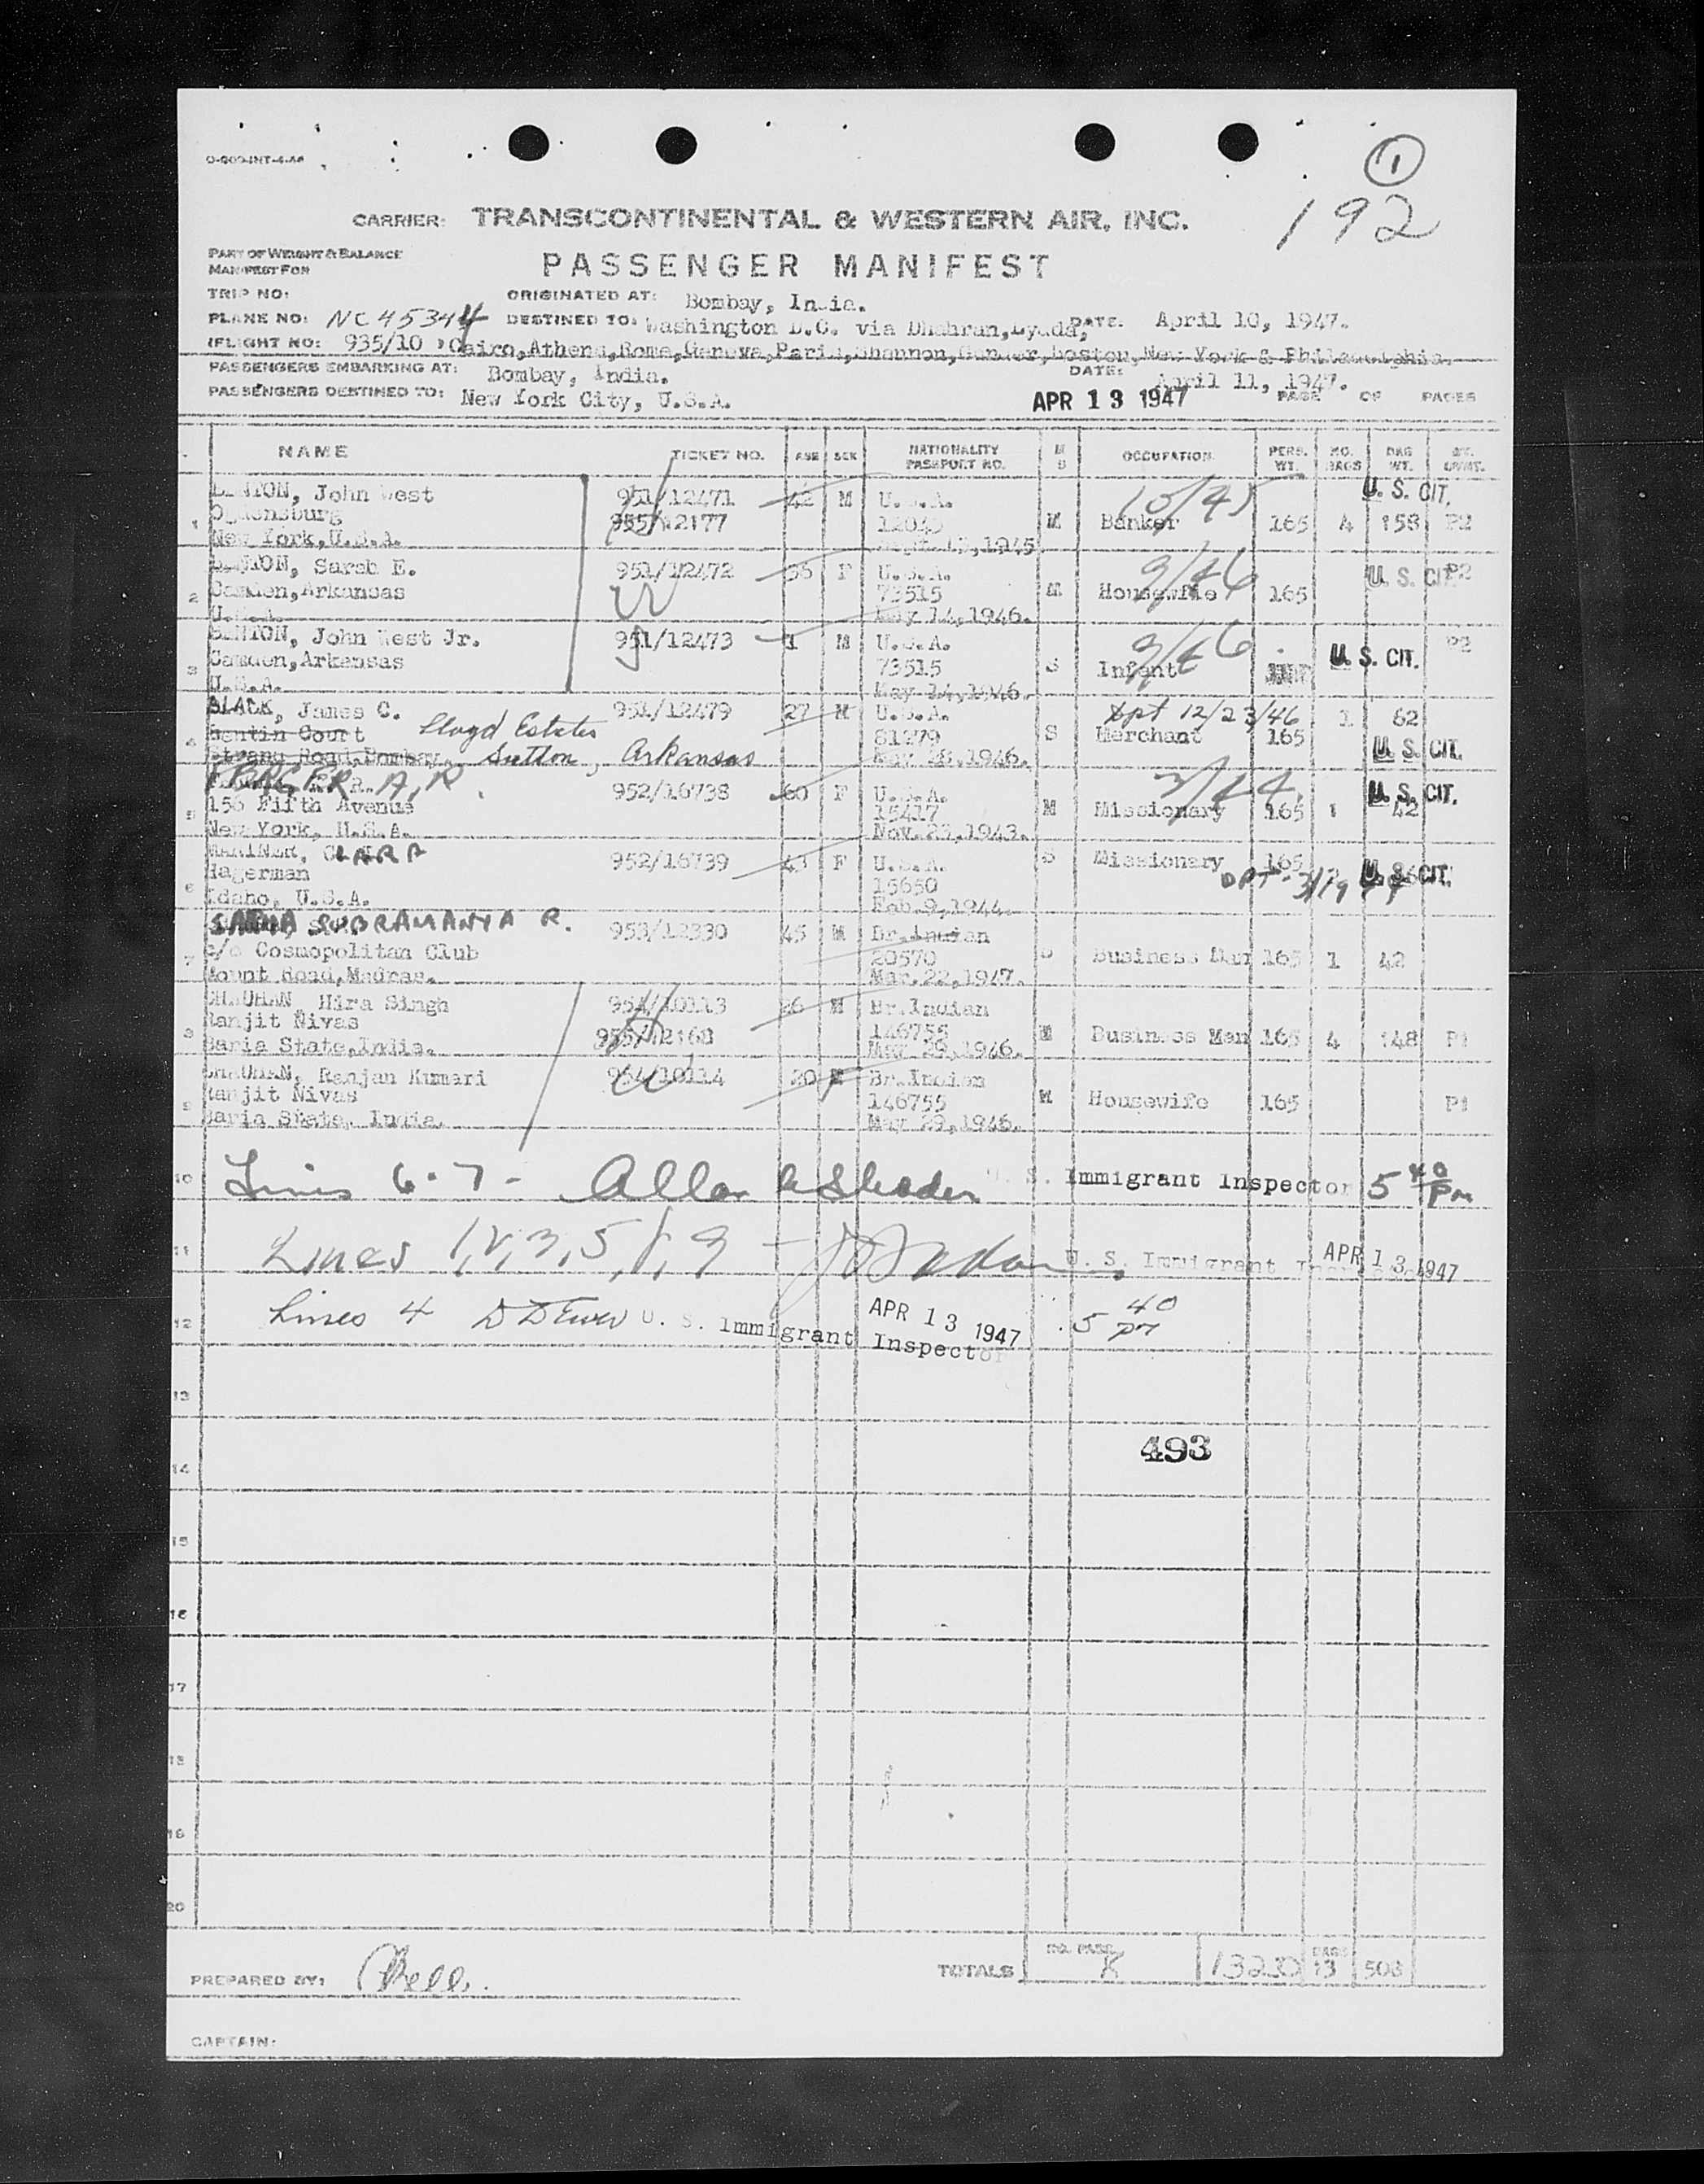 O-600-INT-4-46
1
192
CARRIER: TRANSCONTINENTAL & WESTERN AIR, INC.
PART OF WEIGHT & BALANCE
MANIFEST FOR
PASSENGER MANIFEST
TRIP NO: ORIGINATED AT: Bombay, India.
PLANE NO: NC 45344 DESTINED TO: Washington D.C. via Dhahran, Lydda, DATE: April 10, 1947.
FLIGHT NO: 935/10 Cairo, Athens, Rome, Geneva, Paris, Shannon, Gander, Boston, New York & Philadelphia.
PASSENGERS EMBARKING AT: Bombay, India. DATE: April 11, 1947.
PASSENGERS DESTINED TO: New York City, U.S.A. APR 13 1947 PAGE OF PAGES
NAME TICKET NO. AGE SEX NATIONALITY PASSPORT NO. M S OCCUPATION PERS. WT. NO. BAGS BAG WT.
BENTON, John West 951/12471 42 M U.S.A. 10/45 U. S. CIT.
1 Ogdensburg 955/12177 M Banker 165 4 158 P2
New York, U.S.A. 1945
BENTON, Sarah E. 951/12472 36 F U.S.A. 9/46 U. S. CIT. P2
2 Camden, Arkansas 73515 M Housewife 165
U.S.A. May 14, 1946.
BENTON, John West Jr. 951/12473 1 M U.S.A. 9/46 P2
3 Camden, Arkansas 73515 S Infant U. S. CIT.
U.S.A. May 14, 1946.
BLACK, James C. 951/12479 27 M U.S.A. Dpt 12/23/46 1 62
4 Court Lloyd Estates 81279 S Merchant 165 U. S. CIT.
Strand Road, Bombay. Sutton, Arkansas May 28, 1946.
A. R. 952/16738 60 F U.S.A. U. S. CIT.
5 156 Fifth Avenue 15417 M Missionary 165 1 42
New York, U.S.A. Nov. 23, 1943.
MARINER, CLARA 952/16739 43 F U.S.A. S Missionary 165
Hagerman 15650 U. S. CIT.
6 Idaho, U.S.A. Feb. 9, 1944.
SUBRAMANYA R. 953/12330 45 M Br. Indian
7 c/o Cosmopolitan Club 20570 S Business Man 165 1 42
Mount Road, Madras. Mar. 22, 1947.
CHAUHAN, Hira Singh 954/10113 26 M Br. Indian
8 Ranjit Nivas 955/12168 146755 M Business Man 165 4 148 P1
Baria State, India. May 29, 1946.
CHAUHAN, Ranjan Kumari 954/10114 20 F Br. Indian
9 Ranjit Nivas 146755 M Housewife 165 P1
Baria State, India. May 29, 1946.
10 Lines 6-7- U. S. Immigrant Inspector 5 40 pm
11 Lines 1, 2, 3, 5, 8, 9 - U. S. Immigrant Inspector APR 13 1947
12 Lines 4 U. S. Immigrant Inspector APR 13 1947 5 40 pm
13
493
14
15
16
17
18
19
20
PREPARED BY: TOTALS NO. PASS. 8 1320 BAGS 13 508
CAPTAIN: